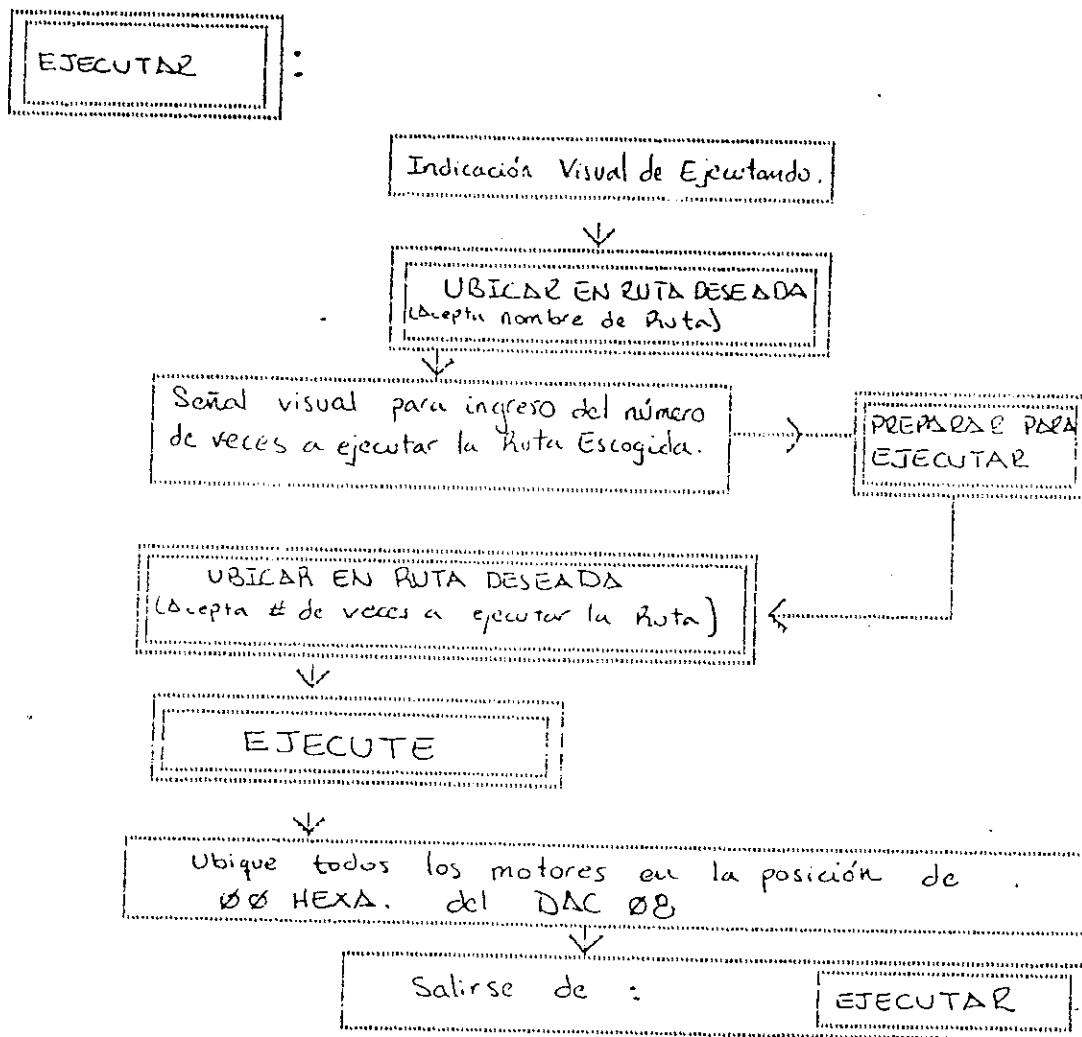 EJECUTAR :
Indicación Visual de Ejecutando.
UBICAR EN RUTA DESEADA
(Acepta nombre de Ruta)
Señal visual para ingreso del número
de veces a ejecutar la Ruta Escogida.
PREPARAR PARA
EJECUTAR
UBICAR EN RUTA DESEADA
(Acepta # de veces a ejecutar la Ruta)
EJECUTE
Ubique todos los motores en la posición de
ØØ HEXA. del DAC Ø8
Salirse de : EJECUTAR.